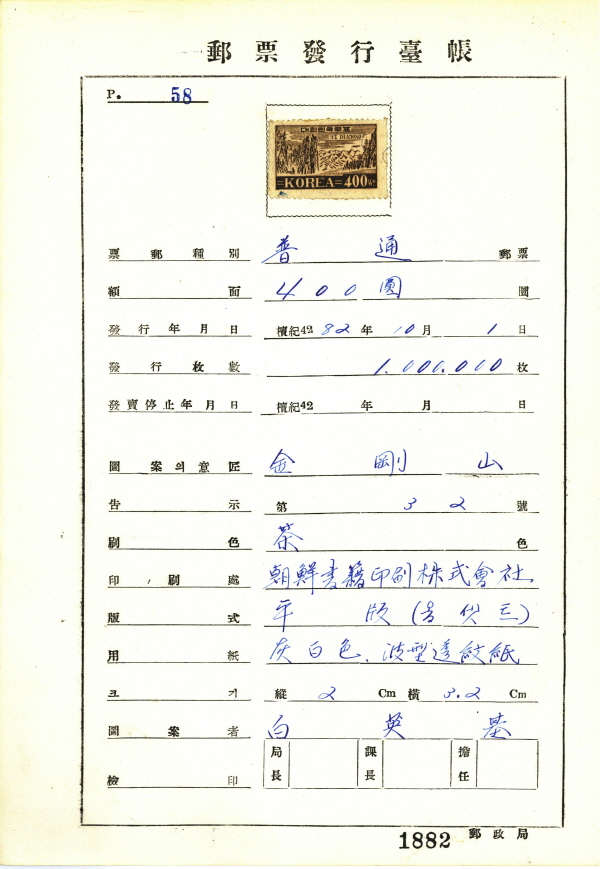 郵票發行臺帳
P. 58
대한민국우표
THE DIAMOND
KOREA 400
票郵種別 普通 郵票
額面 400圓 圓
發行年月日 檀紀4282年10月1日
發行枚數 1.000.000 枚
發賣停止年月日 檀紀42 年 月 日
圖案의意匠 金剛山
告示 第32號
刷色 茶色
印刷處 朝鮮書籍印刷株式會社.
版式 平版
用紙 灰白色、波型透紋紙
크기 縱 2 Cm 橫 3.2 Cm
圖案者 白英基
檢印 局長 課長 擔任
1882 郵政局